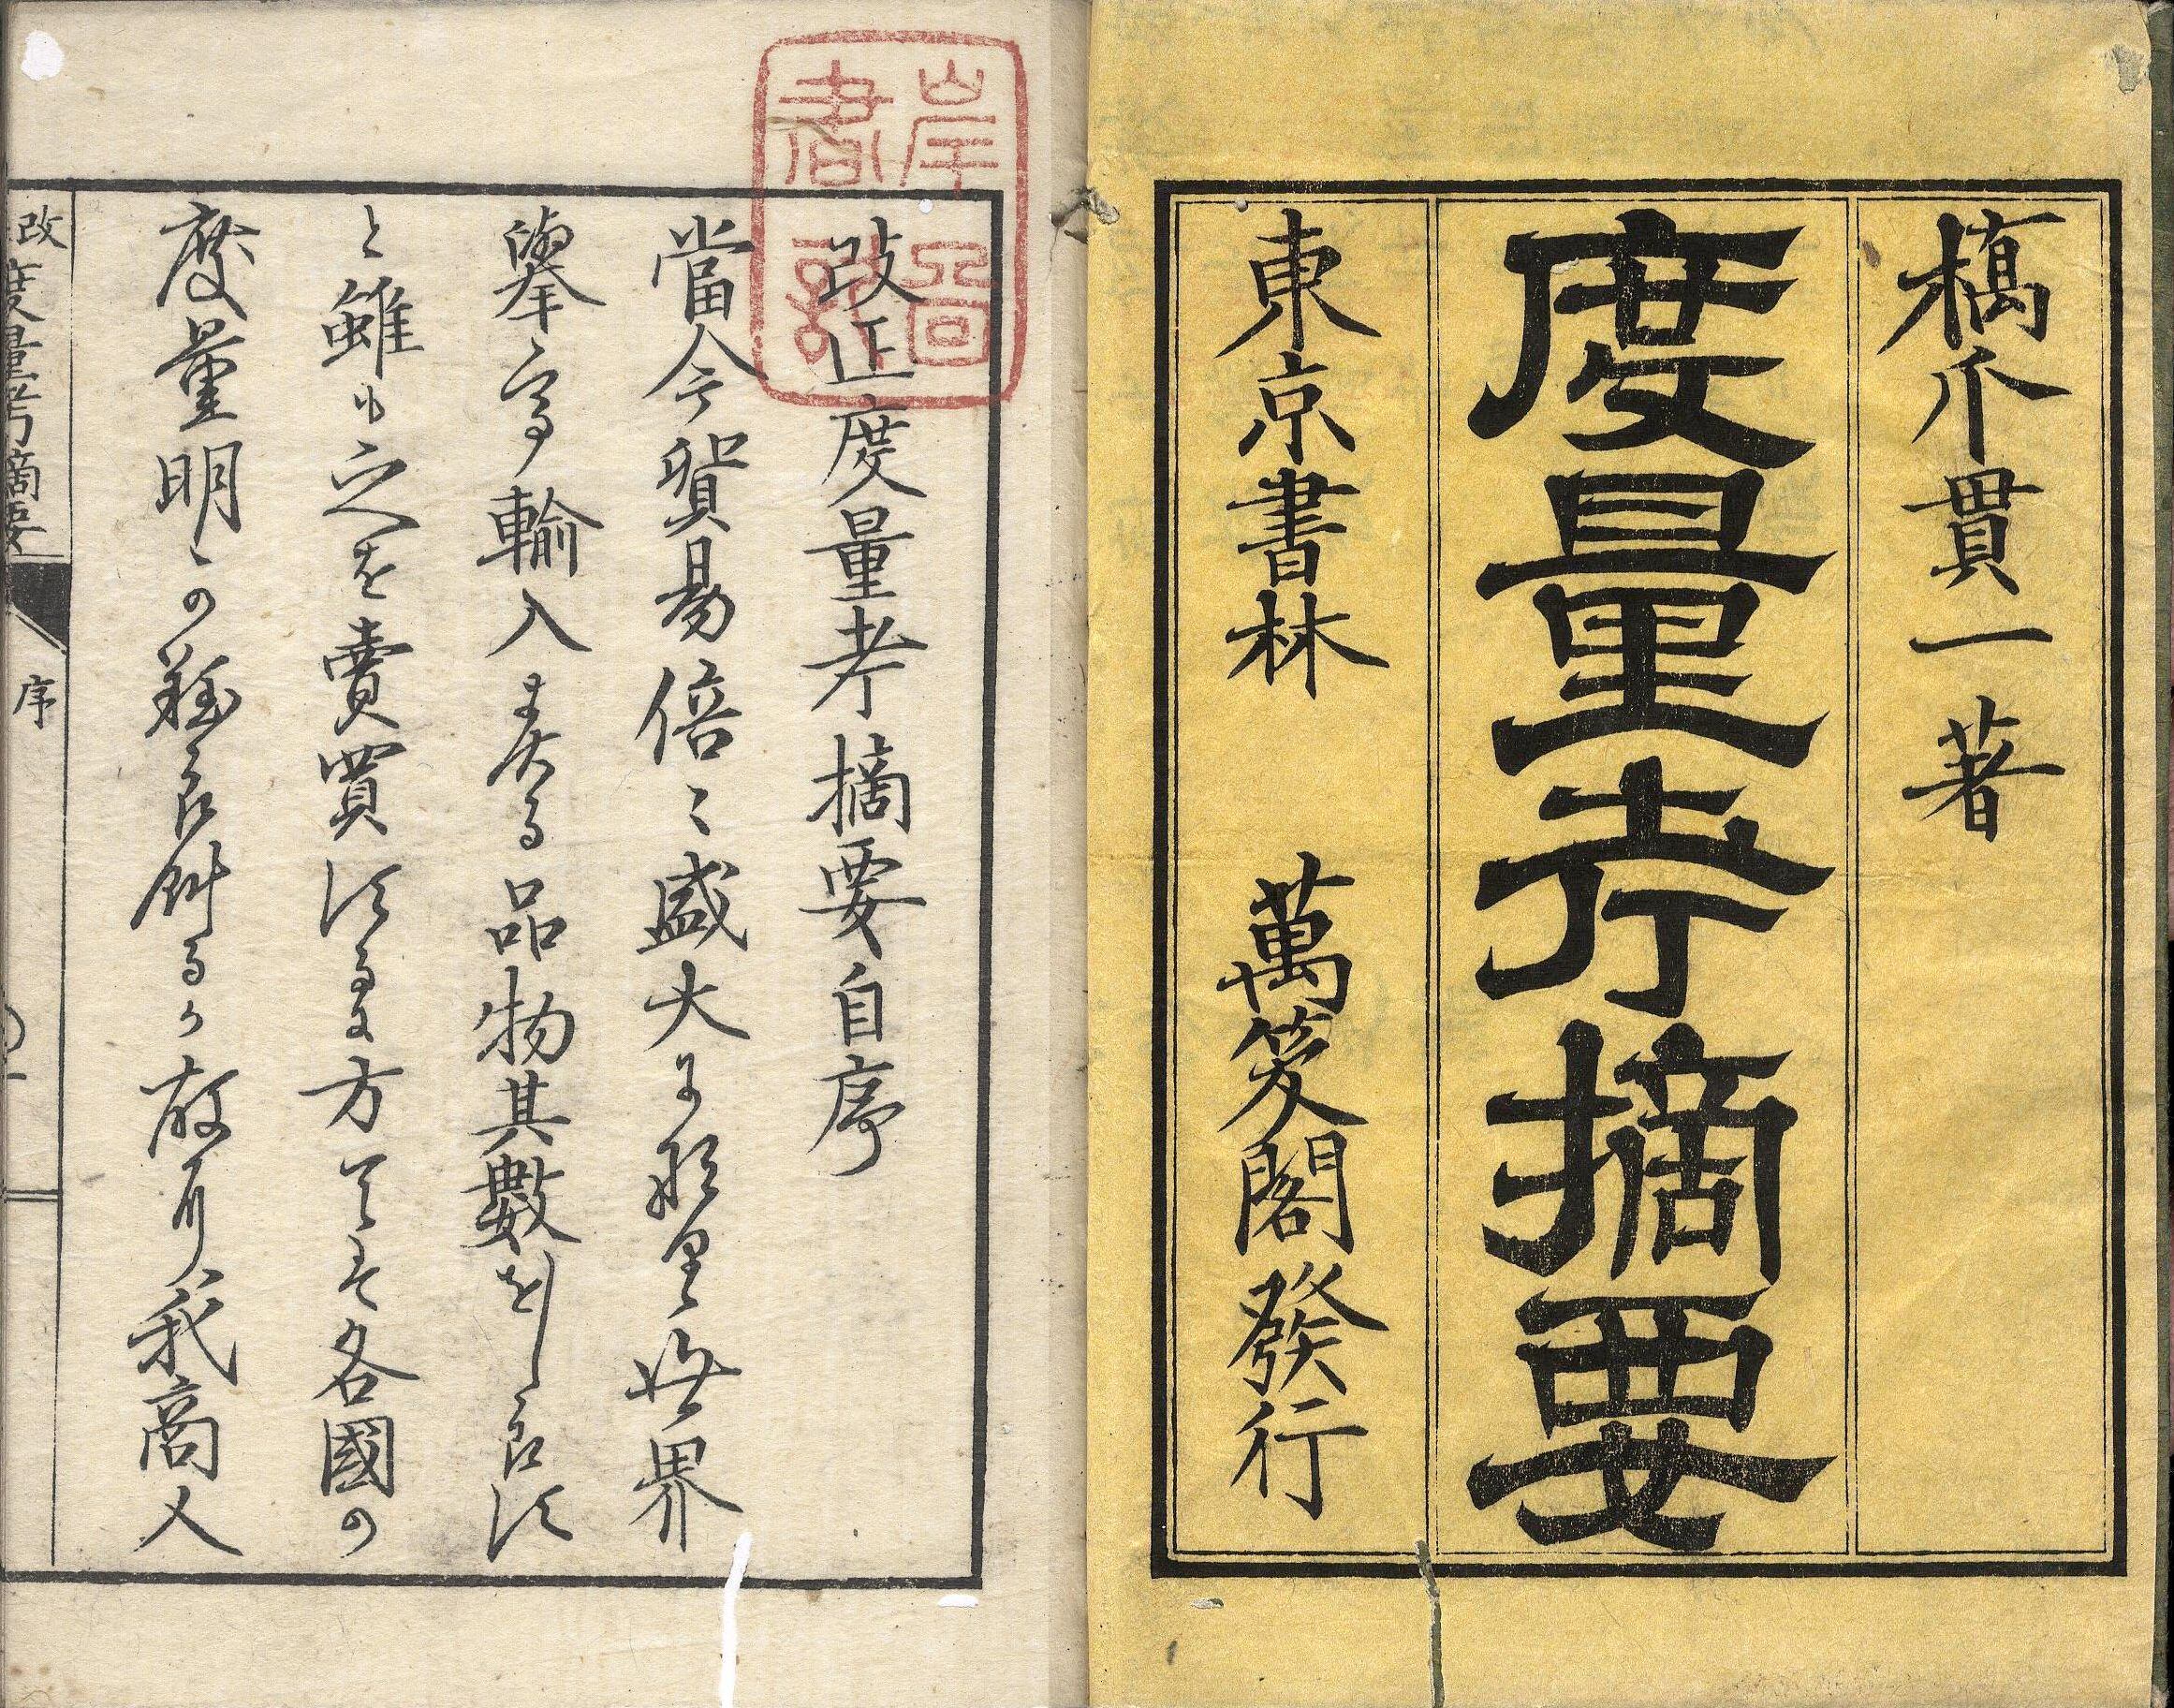 橋爪貫一著
度量考摘要
東京書林 萬笈閣發行
岸啚書記
改正度量考摘要自序
當今貿易倍〻盛大になり世界
擧て輸入る品物其數をしらす
と雖も之を賣買するに方ては各國の
度量明かならさるか故に我商人
改度量考摘要 序